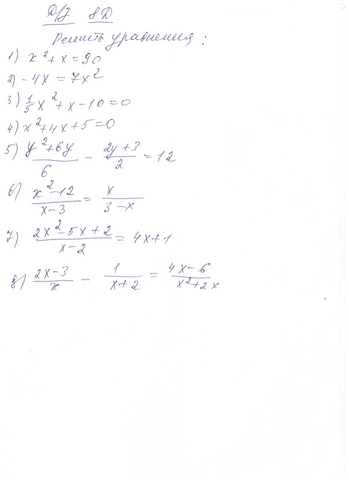 Д/З 8Д
Решить уравнения:
1) x²+x=90
2) -4x=7x²
3) 1/5x²+x-10=0
4) x²+4x+5=0
5) (y²+6y)/6 - (2y+3)/2 = 12
6) (x²-12)/(x-3) = x/(3-x)
7) (2x²-5x+2)/(x-2) = 4x+1
8) (2x-3)/x - 1/(x+2) = (4x-6)/(x²+2x)